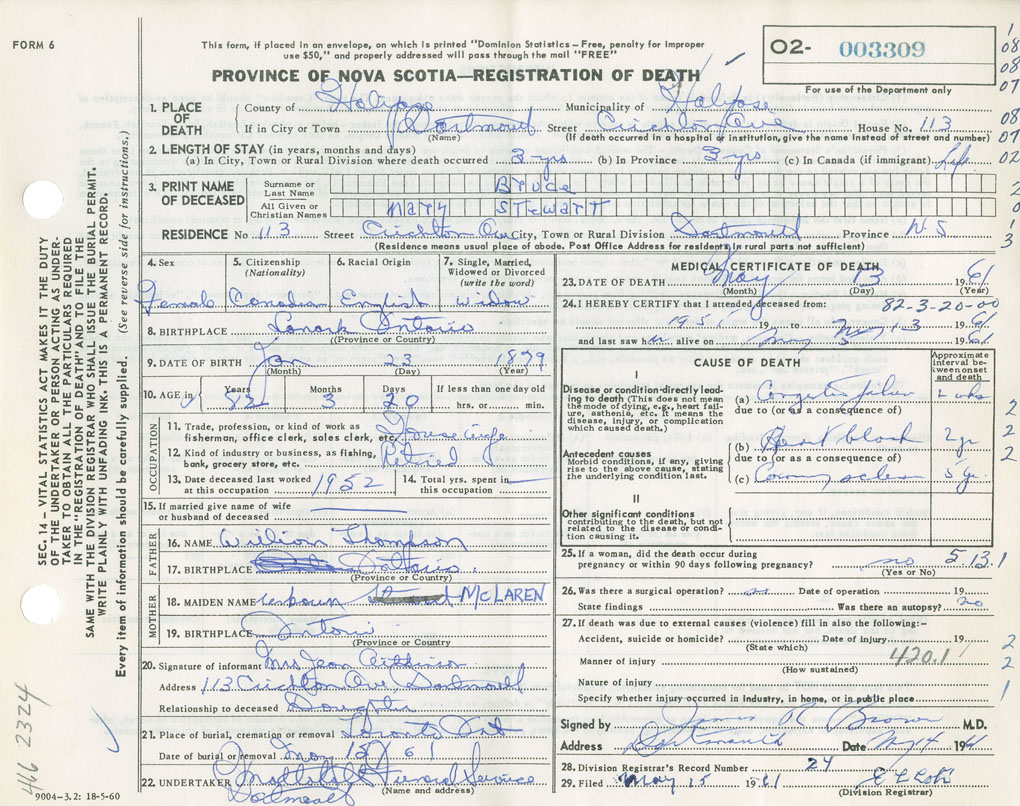 FORM 6
This form, if placed in an envelope, on which is printed "Dominion Statistics – Free, penalty for improper
use $50," and properly addressed will pass through the mail "FREE"
PROVINCE OF NOVA SCOTIA—REGISTRATION OF DEATH
O2- 003309
For use of the Department only
1. PLACE OF DEATH
County of Halifax Municipality of Halifax
If in City or Town Dartmouth Street Crichton Ave House No. 113
(Name) (If death occurred in a hospital or institution, give the name instead of street and number)
2. LENGTH OF STAY (in years, months and days)
(a) In City, Town or Rural Division where death occurred 3 yrs (b) In Province 3 yrs (c) In Canada (if immigrant) Life
3. PRINT NAME OF DECEASED
Surname or Last Name BRUCE
All Given or Christian Names MARY STEWART
RESIDENCE No 113 Street Crichton Ave City, Town or Rural Division Dartmouth Province N S
(Residence means usual place of abode. Post Office Address for residents in rural parts not sufficient)
4. Sex
Female
5. Citizenship
(Nationality)
Canadian
6. Racial Origin
English
7. Single, Married, Widowed or Divorced
(write the word)
Widow
8. BIRTHPLACE Lanark Ontario
(Province or Country)
9. DATE OF BIRTH Jan 23 1879
(Month) (Day) (Year)
10. AGE in Years 82 Months 3 Days 20 If less than one day old
hrs. or min.
OCCUPATION
11. Trade, profession, or kind of work as
fisherman, office clerk, sales clerk, etc. Housewife
12. Kind of industry or business, as fishing,
bank, grocery store, etc. Retired
13. Date deceased last worked
at this occupation 1952
14. Total yrs. spent in
this occupation
15. If married give name of wife
or husband of deceased
FATHER
16. NAME William Thompson
17. BIRTHPLACE Ontario
(Province or Country)
MOTHER
18. MAIDEN NAME McLAREN
19. BIRTHPLACE Ontario
(Province or Country)
20. Signature of informant Mrs Jean
Address 113 Crichton Ave, Dartmouth
Relationship to deceased Daughter
21. Place of burial, cremation or removal Toronto Ont
Date of burial or removal May 15/61
22. UNDERTAKER Funeral Service
(Name and address)
Dartmouth
9004–3.2: 18-5-60
MEDICAL CERTIFICATE OF DEATH
23. DATE OF DEATH May 13 1961
(Month) (Day) (Year)
24. I HEREBY CERTIFY that I attended deceased from: 82-3-20-00
19 to May 13 1961
and last saw her alive on May 1961
CAUSE OF DEATH
Approximate interval between onset and death
I
Disease or condition directly leading to death (This does not mean
the mode of dying, e.g., heart failure, asthenia, etc. It means the
disease, injury, or complication
which caused death.)
(a) Congestive failure
due to (or as a consequence of)
(b) Heart block 2 yr
due to (or as a consequence of)
(c) Coronary 5 yr
Antecedent causes
Morbid conditions, if any, giving
rise to the above cause, stating
the underlying condition last.
II
Other significant conditions
contributing to the death, but not
related to the disease or condition causing it.
25. If a woman, did the death occur during
pregnancy or within 90 days following pregnancy? no 513.1
(Yes or No)
26. Was there a surgical operation? no Date of operation 19
State findings Was there an autopsy? no
27. If death was due to external causes (violence) fill in also the following:–
Accident, suicide or homicide? Date of injury 19
(State which)
Manner of injury 420.1
(How sustained)
Nature of injury
Specify whether injury occurred in industry, in home, or in public place
Signed by James R Brown M.D.
Address Dartmouth Date May 14 1961
28. Division Registrar's Record Number 24
29. Filed May 15 1961
(Division Registrar)
SEC. 14 – VITAL STATISTICS ACT MAKES IT THE DUTY
OF THE UNDERTAKER OR PERSON ACTING AS UNDERTAKER TO OBTAIN ALL THE PARTICULARS REQUIRED
IN THE "REGISTRATION OF DEATH" AND TO FILE THE
SAME WITH THE DIVISION REGISTRAR WHO SHALL ISSUE THE BURIAL PERMIT.
WRITE PLAINLY WITH UNFADING INK. THIS IS A PERMANENT RECORD.
Every item of information should be carefully supplied. (See reverse side for instructions.)
416 2324